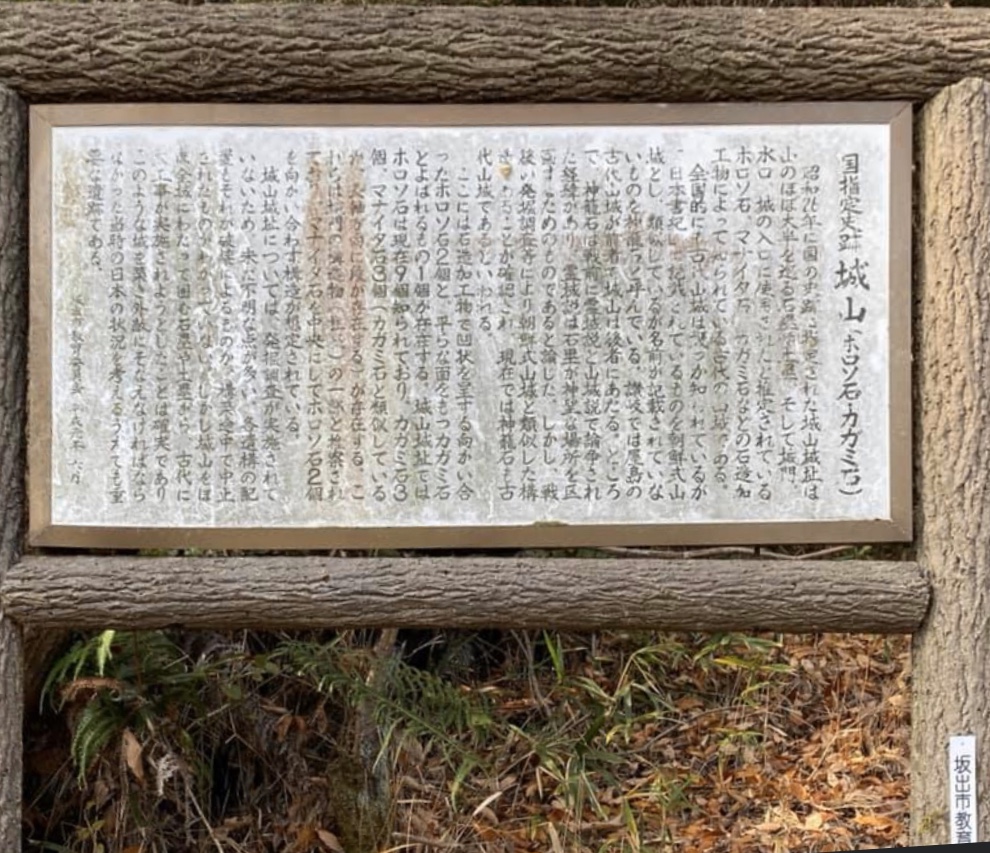 国指定史跡 城山(ホロソ石・カガミ石)
昭和26年に国の史跡に指定された城山城址は
山のほぼ大半を巡る石塁 土塁、そして城門、
水口、城の入口に使用された と推定されている
ホロソ石、マナイタ石、カガミ石などの石造加
工物によって知られている古代の山城である。
全国的に古代山城は 知られているが
「日本書紀」に記載されているものを朝鮮式山
城とし、類似しているが名前が記載されていな
いものを神籠石と呼んでいる。讃岐では屋島の
古代山城が前者で城山は後者にあたる。ところ
で、神籠石は戦前に霊域説と山城説で論争され
た経緯があり、霊域説は石塁が神聖な場所を区
画するためのものであると論じた。しかし、戦
後い発掘調査等により朝鮮式山城と類似した構
造 ることが確認され、現在では神籠石=古
代山城であるといわれる。
ここには石造加工物で凹状を呈する向かい合
ったホロソ石2個と、平らな面をもつカガミ石
とよばれるもの1個が存在する。城山城址では
ホロソ石は現在9個知られており、カガミ石3
個、マナイタ石3個(カガミ石と類似している
が、 両 に段が存在する)が存在する。こ
れらは城門の構造物 の一部と推察され
ており マナイタ石を中央にしてホロソ石2個
を向かい合わす構造が想定されている。
城山城址については、発掘調査が実施されて
いないため、未だ不明な点が多い。各遺構の配
置もそれが破壊によるものか、構築途中で中止
されたものかわかっていない。しかし城山をほ
ぼ全域にわたって囲む石塁や土塁から、古代に
大工事が実施されようとしたことは確実であり
このような城を築て外敵にそなえなければなら
なかった当時の日本の状況を考えるうえでも重
要な遺跡である。
坂出市教育委員会 平成 年 六月
坂出市教育